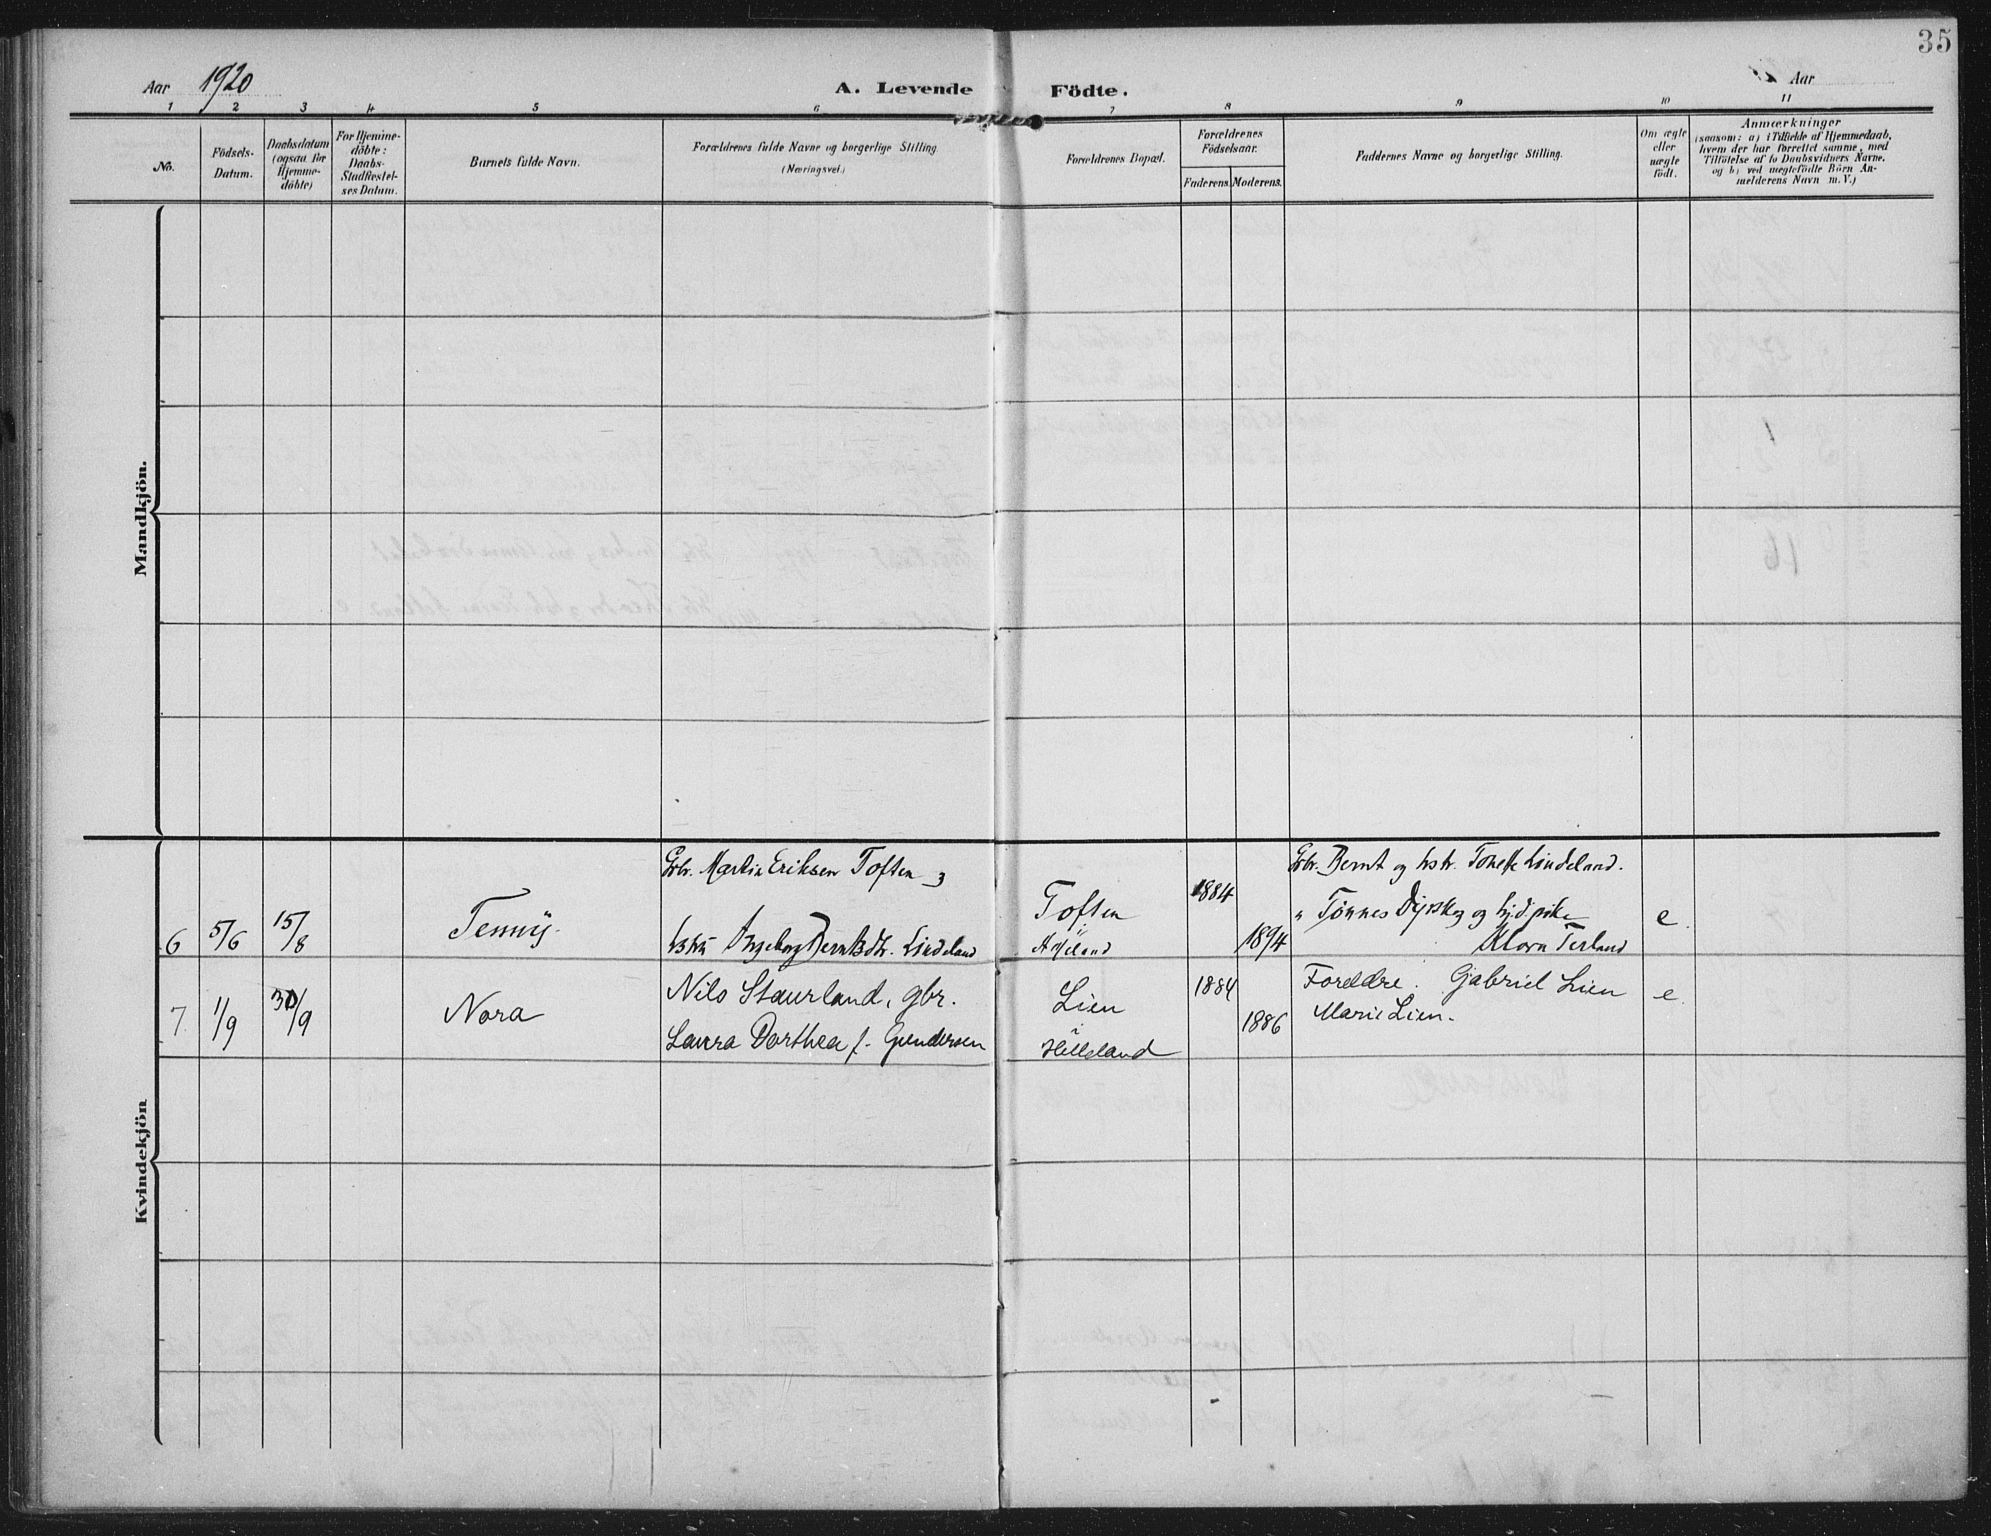 35
Aar 1920
A. Levende Födte.
Aar
1 2 3 4 5 6 7 8 9 10 11
No.
Födsels-
Datum.
Daabsdatum
(ogsaa for
Hjemme-
döbte)
For Hjemme-
döbte:
Daabs-
Stadfæstel-
ses Datum.
Barnets fulde Navn.
Forældrenes fulde Navne og borgerlige Stilling
(Næringsvei.)
Forældrenes Bopæl.
Forældrenes
Födselsaar.
Faderens. Moderens.
Faddernes Navne og borgerlige Stilling.
Om ægte
eller
uægte
födt.
Anmærkninger
(saasom: a) i Tilfælde af Hjemmedaab,
hvem der har forrettet samme, med
Tilföielse af to Daabsvidners Navne.
og b) ved uægtefödte Börn An-
melderens Navn m. V.)
Mandkjön.
Kvindekjön
6 5/6 15/8
Tenny
Gbr. Martin Eriksen Toften
Ingeborg Berntsdtr. Lindeland
Toften
1884
1894
Gbr. Bernt og hstr. Tonette Lindeland.
" Tönnes og
Klara Terland
e
7 1/9 30/9
Nora
Nils Staurland, gbr.
Laura Dorthea f. Gundersen
Lien
Helleland
1884
1886
Foreldre. Gabriel Lien
Marie Lien.
e